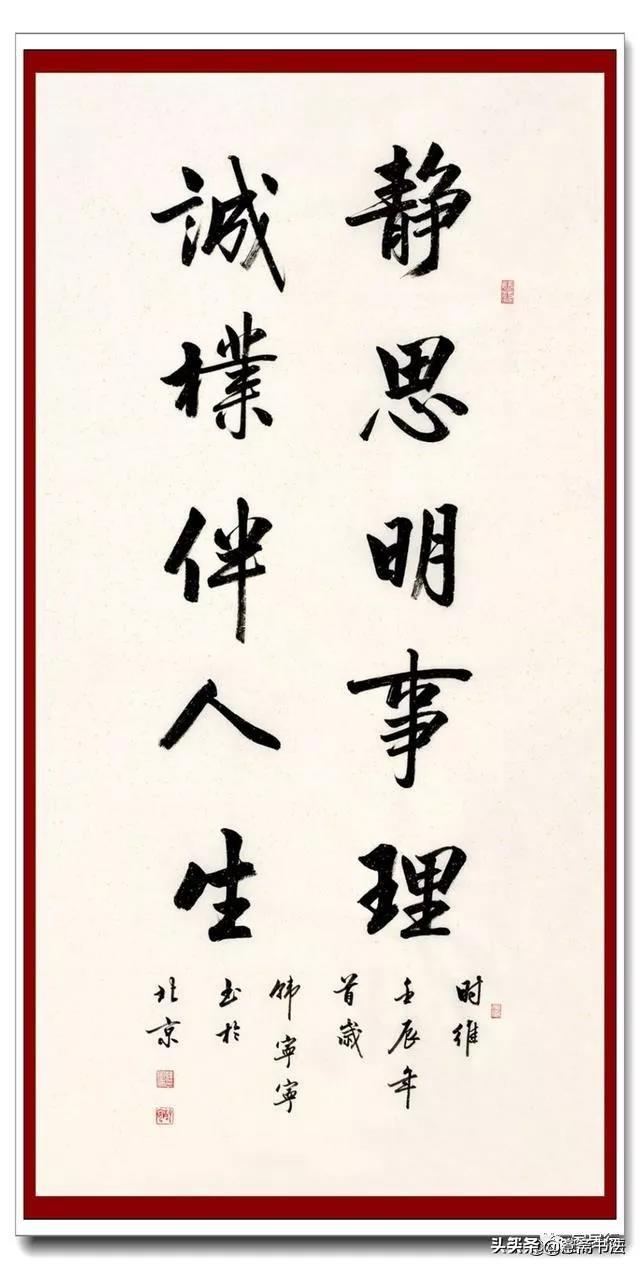 静思明事理
誠樸伴人生
时维
壬辰年
首歲
韩寧寧
书於
北京
头条@
书法